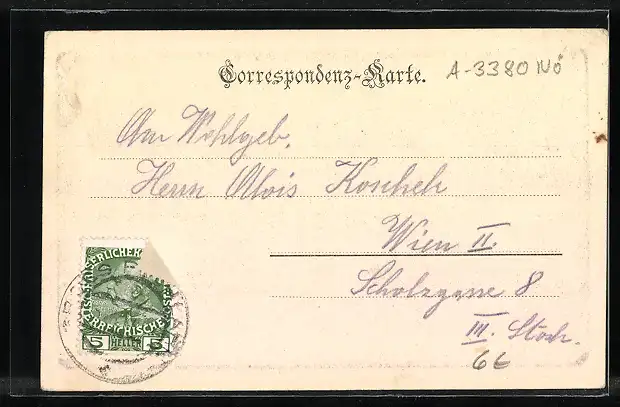 Correspondenz-Karte.
A-3380 NÖ
An Wohlgeb.
Herrn Alois Koscheh
Wien II.
Scholzgasse 8
III. Stock.
66
KAISERLICHE K
ÖSTERREICHISCHE
5 HELLER 5